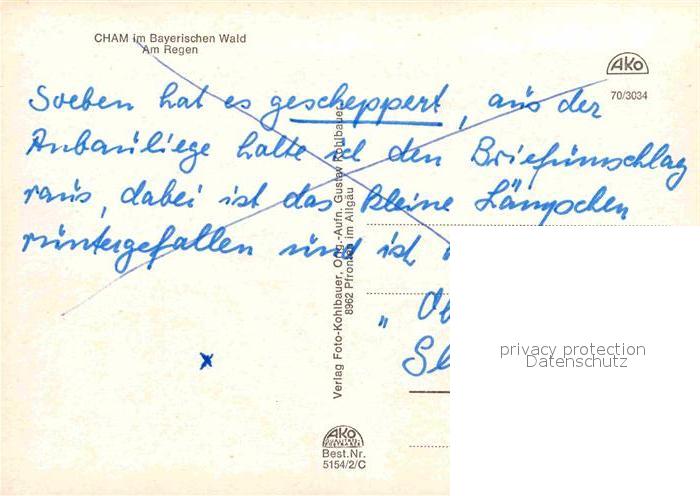 CHAM im Bayerischen Wald
Am Regen
AKO
70/3034
Soeben hat es gescheppert, aus der
Anbauliege holte ich den Briefumschlag
raus, dabei ist das kleine Lämpchen
runtergefallen und ist
"
Verlag Foto-Kohlbauer, Orig.-Aufn. Gustav Kohlbauer,
8962 Pfronten im Allgäu
privacy protection
Datenschutz
x
AKO
Best.Nr.
5154/2/C